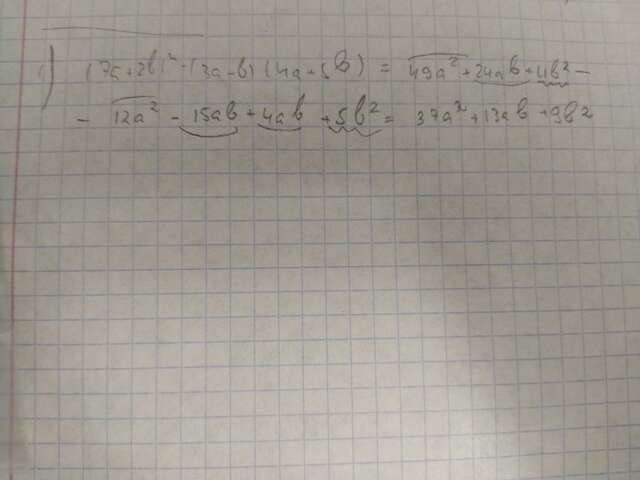 1) (7a+2b)² - (3a-b)(4a+5b) = 49a² + 24ab + 4b² -
- 12a² - 15ab + 4ab + 5b² = 37a² + 13ab + 9b²